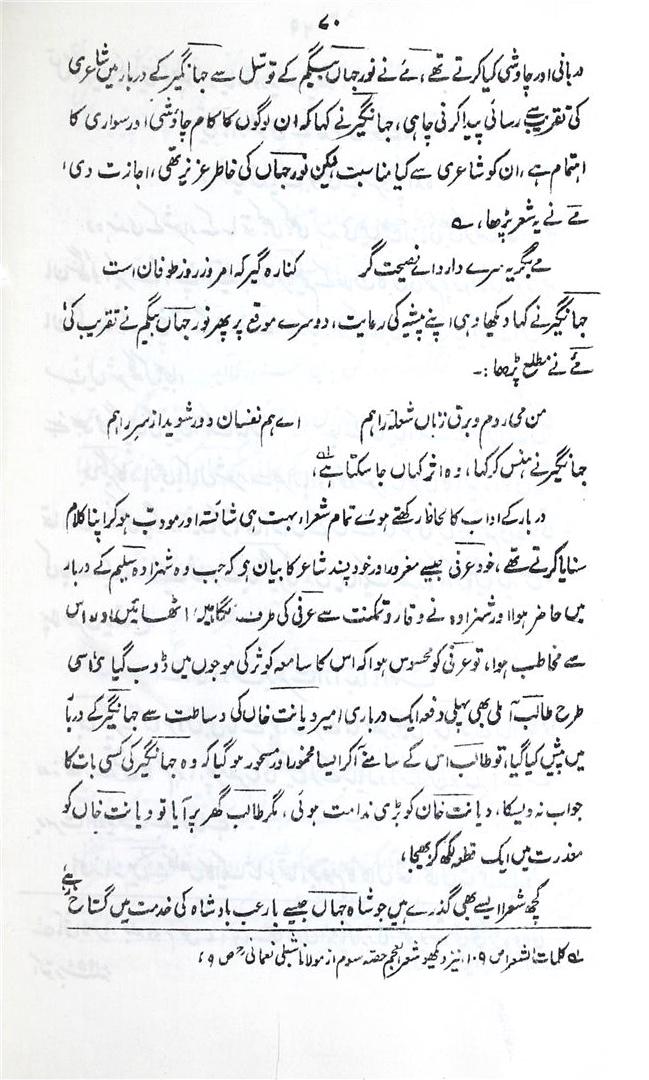 ۷۰
دربانی اور چاوشی کیا کرتے تھے، مے نے نورجہاں بیگم کے توسل سے جہانگیر کے دربار میں شاعری
کی تقریب سے رسائی پیدا کرنی چاہی، جہانگیر نے کہا کہ ان لوگوں کا کام چاؤشی اور سواری کا
اہتمام ہے، ان کو شاعری سے کیا مناسبت لیکن نورجہاں کی خاطر عزیز تھی، اجازت دی،
مے نے یہ شعر پڑھا، ے
مے بگریہ سرے دارد اے نصیحت گر کنارہ گیر کہ امروز روز طوفان است
جہانگیر نے کہا دیکھا وہی اپنے پیشہ کی رعایت، دوسرے موقع پر پھر نورجہاں بیگم نے تقریب کی
مے نے مطلع پڑھا:۔
من می روم و برق زناں شعلہ راہم اے ہم نفسان دور شوید از سر راہم
جہانگیر نے ہنس کر کہا، وہ اثر کہاں جا سکتا ہے،
دربار کے اداب کا لحاظ رکھتے ہوئے تمام شعراء بہت ہی شائستہ اور مودب ہو کر اپنا کلام
سنایا کرتے تھے، خود عرفی جیسے مغرور اور خود پسند شاعر کا بیان ہو کہ جب وہ شہزادہ سلیم کے دربار
میں حاضر ہوا اور شہزادہ نے وقار و تمکنت سے عرفی کی طرف نگاہیں اٹھائیں اور اس
سے مخاطب ہوا، تو عرفی کو محسوس ہوا کہ اس کا سامعہ کوثر کی موجوں میں ڈوب گیا، اسی
طرح طالب آملی بھی پہلی دفعہ ایک درباری امیر دیانت خاں کی وساطت سے جہانگیر کے دربا
میں پیش کیا گیا، تو طالب اس کے سامنے آکر ایسا مخمور اور مسحور ہو گیا کہ وہ جہانگیر کی کسی بات کا
جواب نہ دیسکا، دیانت خان کو بڑی ندامت ہوئی، مگر طالب گھر پر آیا تو دیانت خاں کو
معذرت میں ایک قطعہ لکھ کر بھیجا،
کچھ شعرا ایسے بھی گذرے ہیں جو شاہ جہاں جیسے بارعب بادشاہ کی خدمت میں گستاخ ہوئے
لے کلمات الشعرا ص ۱۰۹، نیز دیکھو شعر العجم حصہ سوم از مولانا شبلی نعمانی ص ۹،